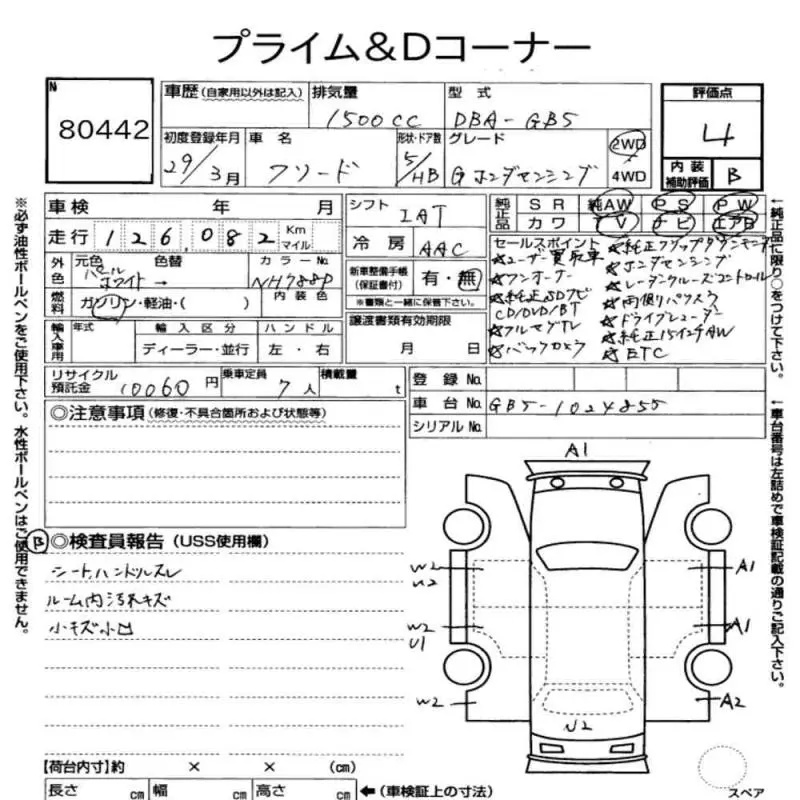 プライム&Dコーナー
N 80442
車歴 (自家用以外は記入) 排気量 1500cc 型式 DBA-GB5
評価点 4
初度登録年月 29/3月 車名 フリード 形状・ドア数 5/HB グレード G ホンダセンシング 2WD 4WD
内装補助評価 B
車検 年 月
走行 126,082 Km マイル
シフト IAT
冷房 AAC
純正品 SR 純AW PS PW
カワ TV ナビ エアB
外色 元色 パールホワイト → 色替 カラーNo. NH788P
燃料 ガソリン・軽油・( ) 内装色
新車整備手帳(保証書付) 有・無
※書類と一緒に保管下さい。
セールスポイント
☆ユーザー買取車
☆ワンオーナー
☆純正SDナビ
CD/DVD/BT
☆フルセグTV
☆バックカメラ
☆純正フリップダウンモニター
☆ホンダセンシング
☆レーダークルーズコントロール
☆両側パワスラ
☆ドライブレコーダー
☆純正15インチAW
☆ETC
輸入車用 年式 輸入区分 ハンドル
ディーラー・並行 左・右
譲渡書類有効期限
月 日
リサイクル預託金 10060円 乗車定員 7人 積載量 t
登録No.
車台No. GB5-1024855
シリアルNo.
◎注意事項 (修復・不具合箇所および状態等)
B ◎検査員報告 (USS使用欄)
シート、ハンドルスレ
ルーム内汚れキズ
小キズ小凹
A1
W2
U2
A1
W2
U1
A1
W2
A2
U2
スペア
【荷台内寸】約 × × (cm)
長さ cm 幅 cm 高さ cm ←(車検証上の寸法)
※必ず油性ボールペンをご使用下さい。水性ボールペンはご使用できません。
←純正品に限り○をつけて下さい。
←車台番号は左詰めで車検証記載の通りご記入下さい。